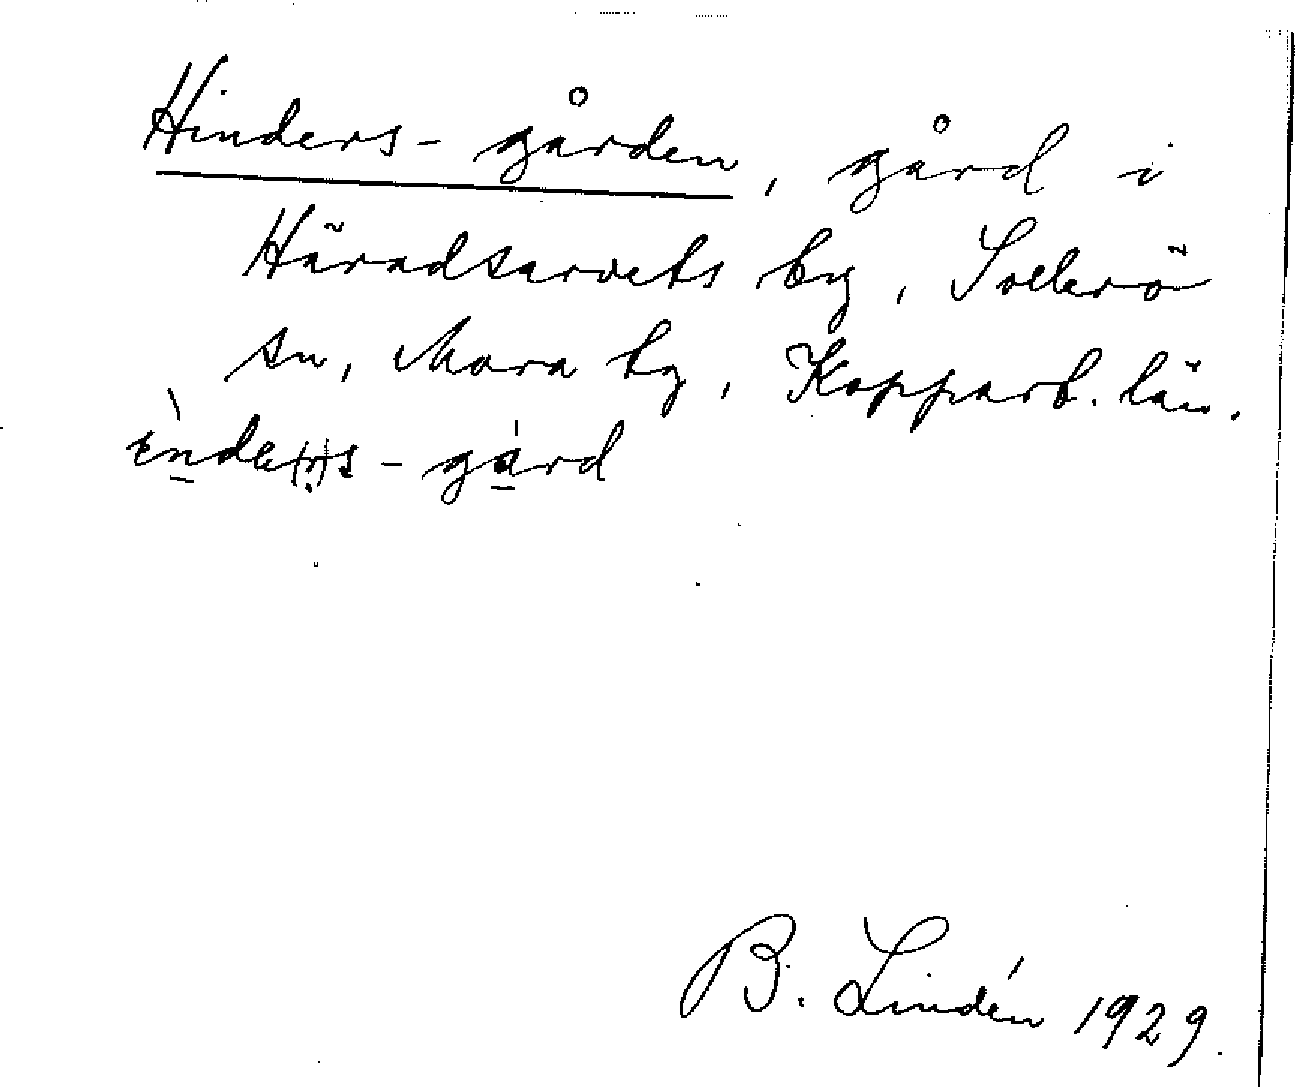 Hinders-gården, gård i
Häradsarvets by, Sollerö
sn, Mora tg, Kopparb. län.
B. Lindén 1929.